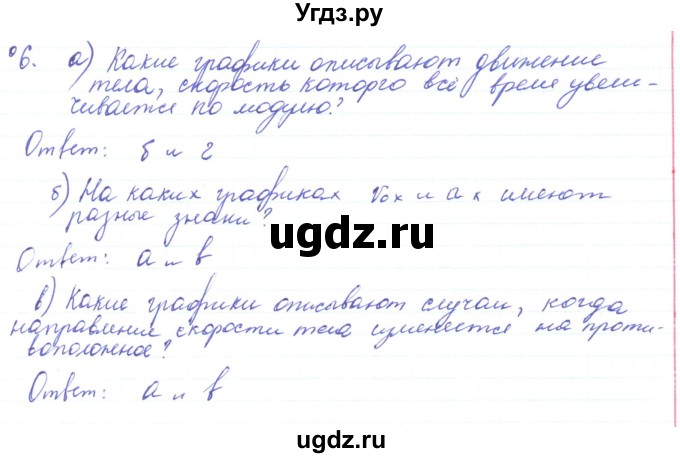 Угдз.ру
°6. а) Какие графики описывают движение
тела, скорость которого всё время увели-
чивается по модулю?
Ответ: б и г
б) На каких графиках v₀ₓ и aₓ имеют
разные знаки?
ugdz.ru
Ответ: а и в
в) Какие графики описывают случаи, когда
направление скорости тела изменяется на проти-
воположное?
Ответ: а и в
ugdz.ru